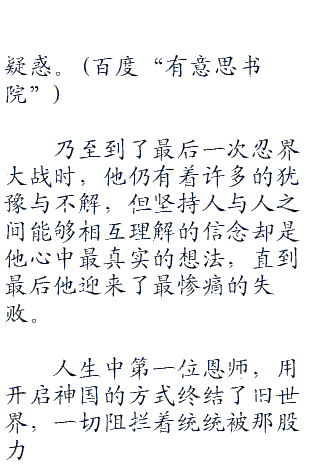 疑惑。(百度“有意思书
院”)
乃至到了最后一次忍界
大战时，他仍有着许多的犹
豫与不解，但坚持人与人之
间能够相互理解的信念却是
他心中最真实的想法，直到
最后他迎来了最惨痛的失
败。
人生中第一位恩师，用
开启神国的方式终结了旧世
界，一切阻拦着统统被那股
力